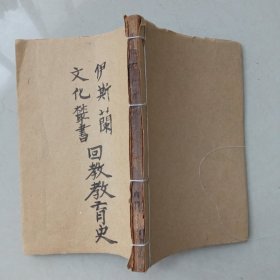 伊斯蘭
文化叢書
回教教育史